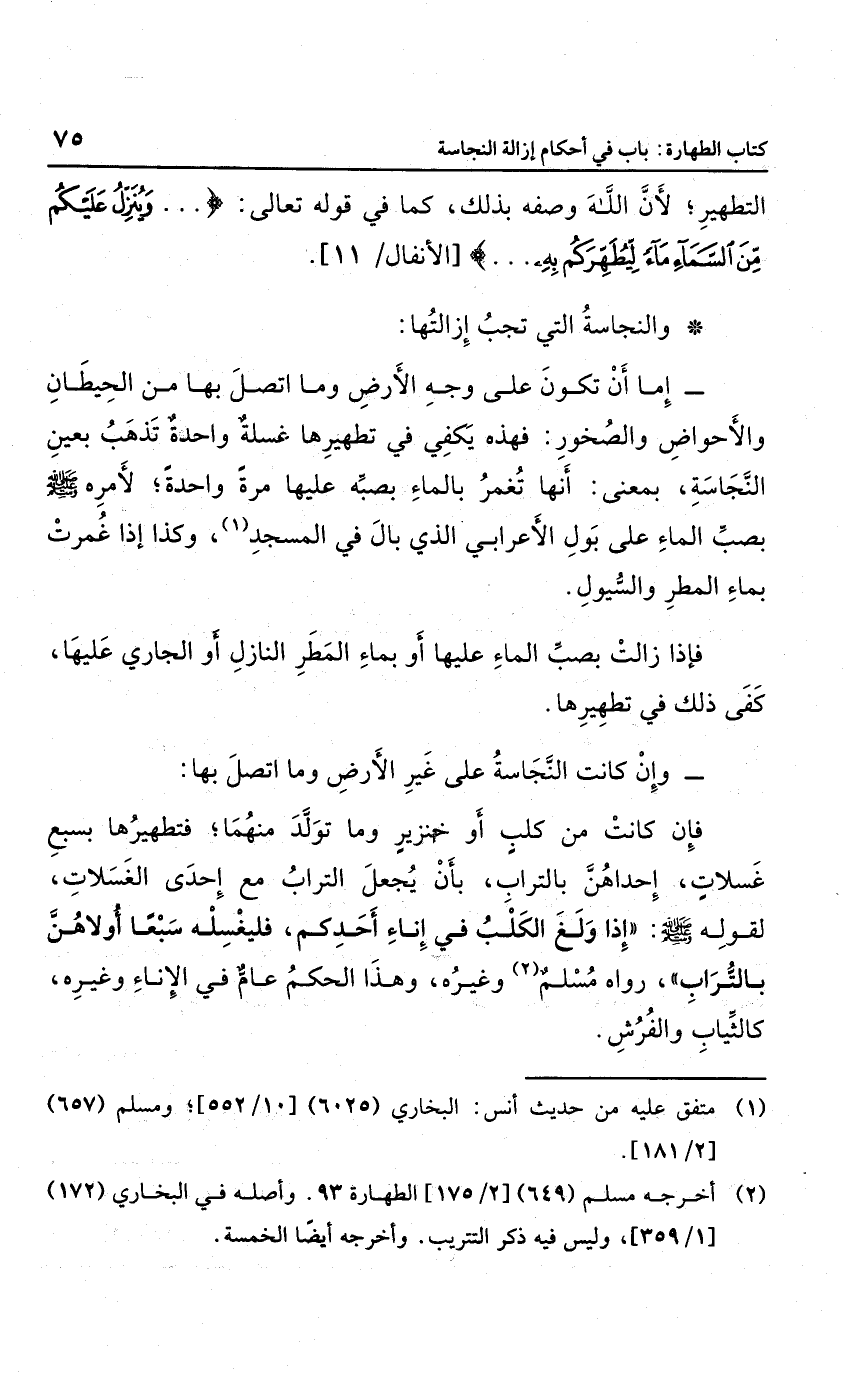 كتاب الطهارة: باب في أحكام إزالة النجاسة ٧٥
التطهيرِ؛ لأَنَّ اللَّـٰهَ وصفه بذلك، كما في قوله تعالى: ﴿. . . وَيُنَزِّلُ عَلَيْكُم
مِّنَ ٱلسَّمَآءِ مَآءً لِّيُطَهِّرَكُم بِهِۦ. . .﴾ [الأنفال/ ١١].
* والنجاسةُ التي تجبُ إِزالتُها:
ــ إِما أَنْ تكونَ على وجهِ الأَرضِ وما اتصلَ بها من الحِيطَانِ
والأَحواضِ والصُخورِ: فهذه يَكفِي في تطهيرِها غسلةٌ واحدةٌ تَذهَبُ بعينِ
النَّجَاسَةِ، بمعنى: أَنها تُغمرُ بالماءِ بصبِّه عليها مرةً واحدةً؛ لأَمرِه ﷺ
بصبِّ الماءِ على بَولِ الأَعرابي الذي بالَ في المسجدِ(١)، وكذا إذا غُمرتْ
بماءِ المطرِ والسُّيولِ.
فإذا زالتْ بصبِّ الماءِ عليها أَو بماءِ المَطَرِ النازلِ أَو الجاري عَليهَا،
كَفَى ذلك في تطهِيرِها.
ــ وإِنْ كانت النَّجَاسةُ على غَيرِ الأَرضِ وما اتصلَ بها:
فإِن كانتْ من كلبٍ أَو خنزيرٍ وما توَلَّدَ منهُمَا؛ فتطهيرُها بسبعِ
غَسلاتٍ، إِحداهُنَّ بالترابِ، بأَنْ يُجعلَ الترابُ مع إِحدَى الغَسَلاتِ،
لقولِه ﷺ: «إِذا وَلَغَ الكَلْبُ في إِناءِ أَحَدِكم، فليغْسِلْه سَبْعًا أُولاهُنَّ
بالتُّرَابِ»، رواه مُسْلمٌ(٢) وغيرُه، وهذَا الحكمُ عامٌّ في الإِناءِ وغيرِه،
كالثِّيابِ والفُرُشِ.
(١) متفق عليه من حديث أنس: البخاري (٦٠٢٥) [١٠/ ٥٥٢]؛ ومسلم (٦٥٧)
[٢/ ١٨١].
(٢) أخرجه مسلم (٦٤٩) [٢/ ١٧٥] الطهارة ٩٣. وأصله في البخاري (١٧٢)
[١/ ٣٥٩]، وليس فيه ذكر التتريب. وأخرجه أيضًا الخمسة.